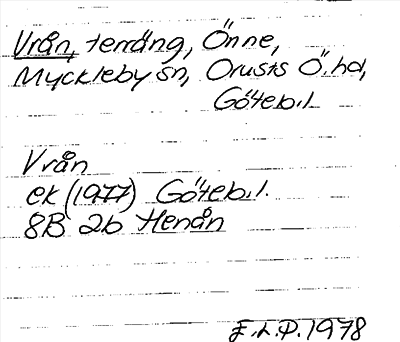 Vrån, terräng, Önne,
Myckleby sn, Orusts Ö. hd,
Göteb.l.
Vrån
ek (1977) Göteb.l.
8B 2b Henån
E.L.P. 1978